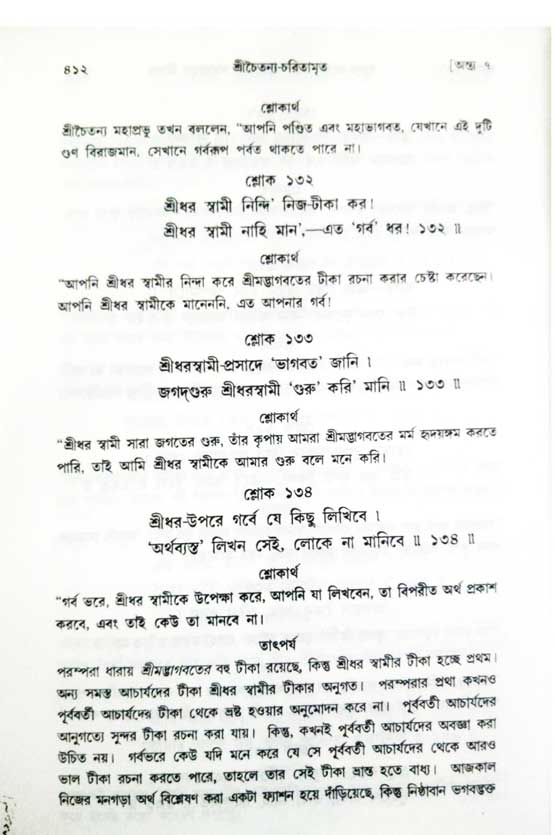 ৪১২ শ্রীচৈতন্য-চরিতামৃত [অন্ত্য ৭
শ্লোকার্থ
শ্রীচৈতন্য মহাপ্রভু তখন বললেন, “আপনি পণ্ডিত এবং মহাভাগবত, যেখানে এই দুটি
গুণ বিরাজমান, সেখানে গর্বরূপ পর্বত থাকতে পারে না।
শ্লোক ১৩২
শ্রীধর স্বামী নিন্দি’ নিজ-টীকা কর!
শ্রীধর স্বামী নাহি মান’,—এত ‘গর্ব’ ধর! ১৩২ ॥
শ্লোকার্থ
“আপনি শ্রীধর স্বামীর নিন্দা করে শ্রীমদ্ভাগবতের টীকা রচনা করার চেষ্টা করেছেন।
আপনি শ্রীধর স্বামীকে মানেননি, এত আপনার গর্ব!
শ্লোক ১৩৩
শ্রীধরস্বামী-প্রসাদে ‘ভাগবত’ জানি ।
জগদ্‌গুরু শ্রীধরস্বামী ‘গুরু’ করি’ মানি ॥ ১৩৩ ॥
শ্লোকার্থ
“শ্রীধর স্বামী সারা জগতের গুরু, তাঁর কৃপায় আমরা শ্রীমদ্ভাগবতের মর্ম হৃদয়ঙ্গম করতে
পারি, তাই আমি শ্রীধর স্বামীকে আমার গুরু বলে মনে করি।
শ্লোক ১৩৪
শ্রীধর-উপরে গর্বে যে কিছু লিখিবে ।
‘অর্থব্যস্ত’ লিখন সেই, লোকে না মানিবে ॥ ১৩৪ ॥
শ্লোকার্থ
“গর্ব ভরে, শ্রীধর স্বামীকে উপেক্ষা করে, আপনি যা লিখবেন, তা বিপরীত অর্থ প্রকাশ
করবে, এবং তাই কেউ তা মানবে না।
তাৎপর্য
পরম্পরা ধারায় শ্রীমদ্ভাগবতের বহু টীকা রয়েছে, কিন্তু শ্রীধর স্বামীর টীকা হচ্ছে প্রথম।
অন্য সমস্ত আচার্যদের টীকা শ্রীধর স্বামীর টীকার অনুগত। পরম্পরার প্রথা কখনও
পূর্ববর্তী আচার্যদের টীকা থেকে ভ্রষ্ট হওয়ার অনুমোদন করে না। পূর্ববর্তী আচার্যদের
আনুগত্যে সুন্দর টীকা রচনা করা যায়। কিন্তু, কখনই পূর্ববর্তী আচার্যদের অবজ্ঞা করা
উচিত নয়। গর্বভরে কেউ যদি মনে করে যে সে পূর্ববর্তী আচার্যদের থেকে আরও
ভাল টীকা রচনা করতে পারে, তাহলে তার সেই টীকা ভ্রান্ত হতে বাধ্য। আজকাল
নিজের মনগড়া অর্থ বিশ্লেষণ করা একটা ফ্যাশন হয়ে দাঁড়িয়েছে, কিন্তু নিষ্ঠাবান ভগবদ্ভক্ত